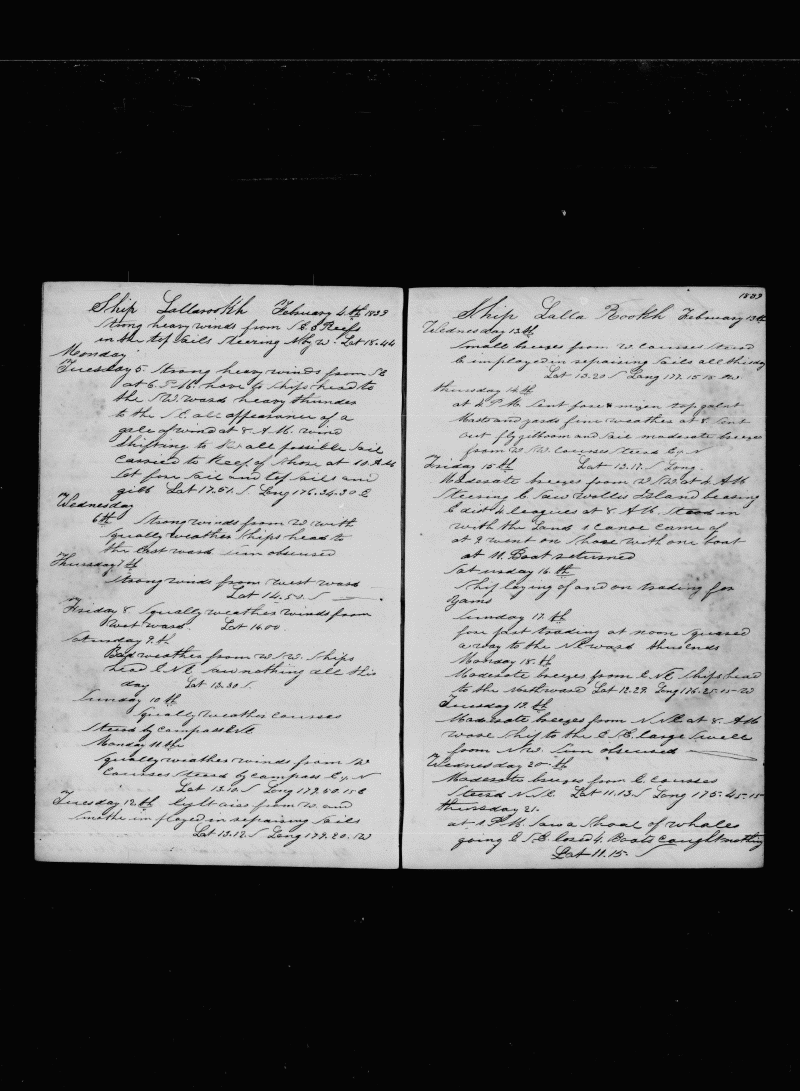 Ship Lallarookh February 4th 1839
Strong heavy winds from S E 3 Reefs
in the top sails steering N by W - Lat 18.44
Monday
Tuesday 5 Strong heavy winds from SE
at 6 P.M. hove ships head to
the SW. ward heavy thunder
to the N. all appearance of a
gale of wind at 8 A.M. wind
shifting to all possible sail
carried to Keep of Shore at 10 P.M.
Set fore sail and top sails and
gibb Lat 17.51. S. Long 176.34.30 E
Wednesday
6th Strong winds from W with
squally weather ships head to
the East ward sun obscured
Thursday 7th
Strong winds from west ward
Lat 14.50. S
Friday 8 Squally weather winds from
West ward. Lat 14.00
Saturday 9th
Bad weather from W.S.W. ships
head E.N.E saw nothing all this
day Lat 13.30 S.
Sunday 10th
Squally weather courses
Steerd by compass ENE
Monday 11th
Squally weather winds from W
Courses Steerd by compass E by N
Lat 13.10 S Long 179.50.15 E
Tuesday 12th light airs from W. and
Smothe imployed in repairing sails
Lat 13.12. S Long 179.20. W
1839
Ship Lalla Rookh February 13th
Wednesday 13th
Small breezes from W. courses steerd
E imployed in repairing sails all this day
Lat 13.20 S Long 177.15.15 W
thursday 14th
at 4 P M Sent fore & mizen top galnt
Masts and yards fine weather at 8 Sent
out flying jibboom and Sail moderate breezes
from W SW. Courses Steerd E by N
Friday 15th Lat 13.17. S Long.
Moderate breezes from W SW. at 4 AM
Steering E Saw Wallis Island bearing
E dist 4 leagues at 8 A.M. stood in
with the Land 1 canoe came of
at 9 went on Shore with one boat
at 11. Boat returned
Saturday 16th
Ship laying of and on trading for
Yams
Sunday 17th
fore part trading at noon Squared
a way to the NE ward thus ends
Monday 18th
Moderate breezes from E NE Ships head
to the Northward Lat 12.29. Long 176.25-15-W
Tuesday 19th
Moderate breezes from N NE at 8 AM
wore Ship to the E SE. large Swell
from N W. Sun obscured
Wednesday 20th
Moderate breezes from E Courses
Steerd N.E. Lat 11.13. S Long 175-45-15
thursday 21.
at 1 P.M. Saw a Shoal of whales
going E S.E. lowrd 4. Boats Caught nothing
Lat 11.15. S